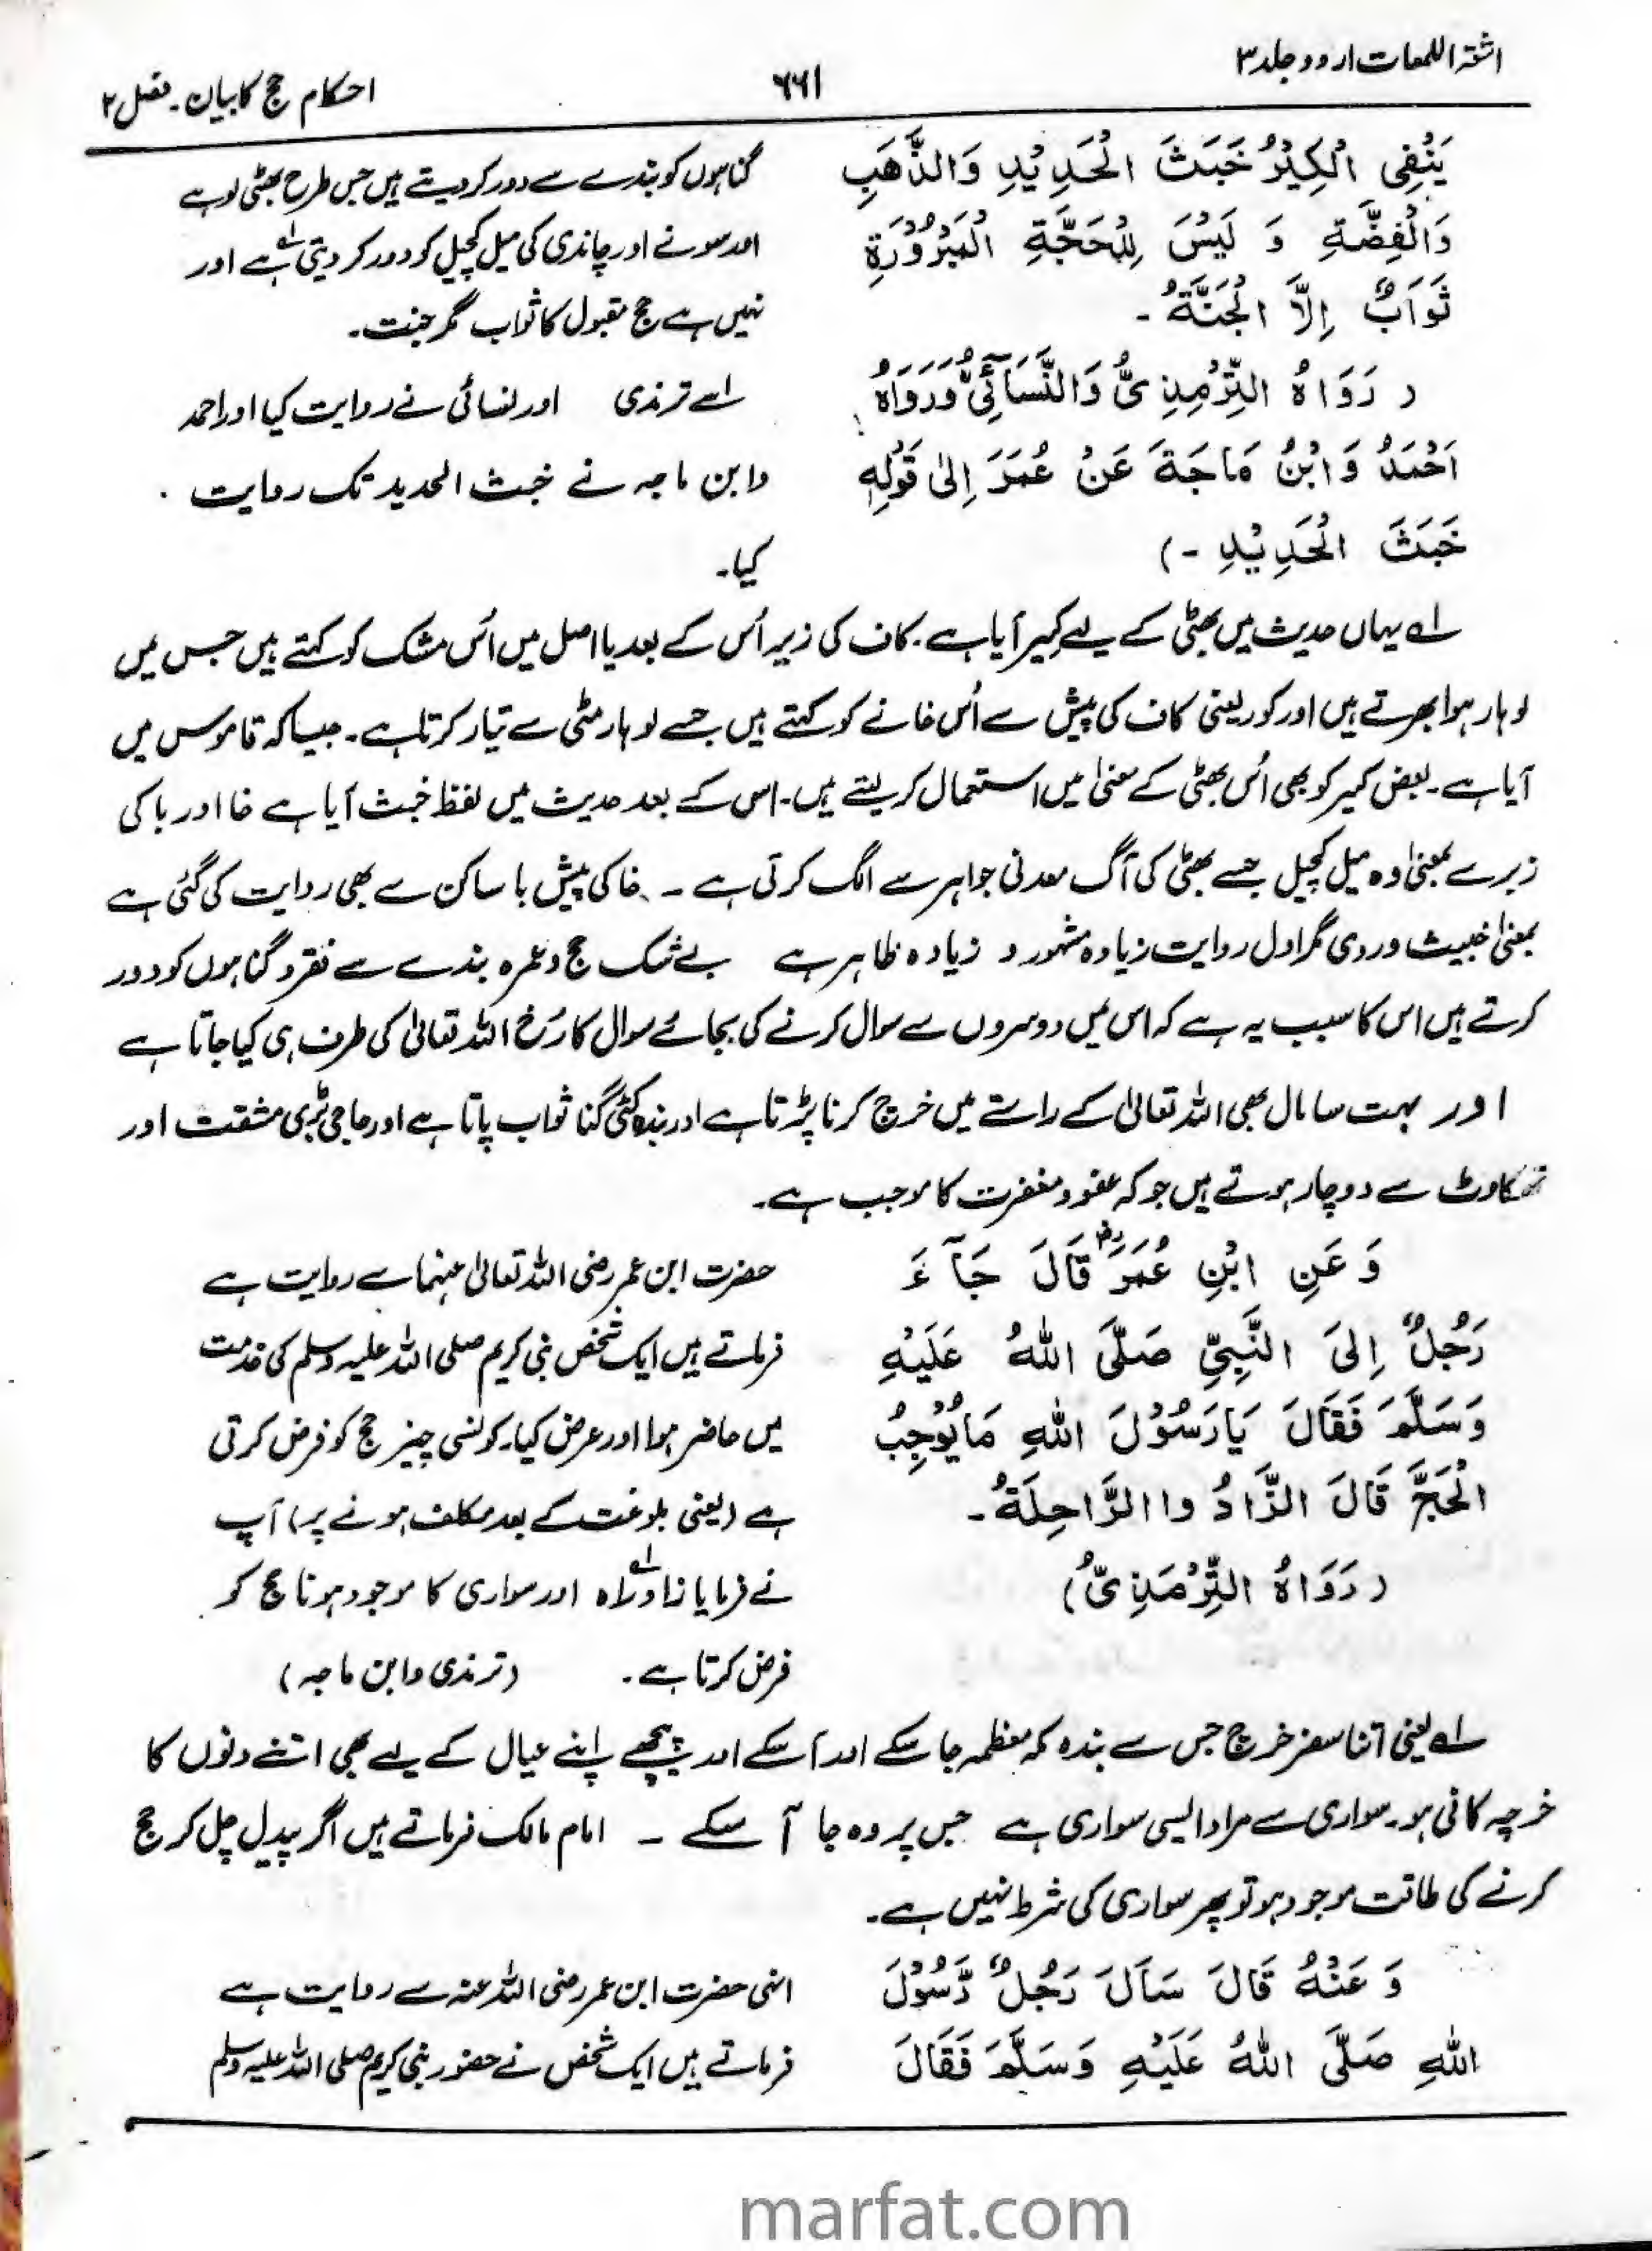 اشعۃ اللمعات اردو جلد ۳
۶۶۱
احکام حج کا بیان۔ فصل ۲
يَنْفِى الْكِيْرُ خَبَثَ الْحَدِيْدِ وَالذَّهَبِ
وَالْفِضَّةِ وَ لَيْسَ لِلْحَجَّةِ الْمَبْرُوْرَةِ
ثَوَابٌ اِلَّا الْجَنَّةُ ۔
( رَوَاهُ التِّرْمِذِىُّ وَالنَّسَآئِىُّ وَرَوَاهُ
اَحْمَدُ وَ ابْنُ مَاجَةَ عَنْ عُمَرَ اِلٰى قَوْلِهٖ
خَبَثَ الْحَدِيْدِ ۔)
گناہوں کو بندے سے دور کر دیتے ہیں جس طرح بھٹی لوہے
اور سونے اور چاندی کی میل کچیل کو دور کر دیتی ہے لہ اور
نہیں ہے حج مقبول کا ثواب مگر جنت۔
اسے ترمذی اور نسائی نے روایت کیا اور احمد
وابن ماجہ نے خبث الحدید تک روایت
کیا۔
لہ یہاں حدیث میں بھٹی کے لیے کیر آیا ہے۔ کاف کی زیر اُس کے بعد یا اصل میں اُس مشک کو کہتے ہیں جس میں
لوہار ہوا بھرتے ہیں اور کور یعنی کاف کی پیش سے اُس خانے کو کہتے ہیں جسے لوہار مٹی سے تیار کرتا ہے۔ جیسا کہ قاموس میں
آیا ہے۔ بعض کیر کو بھی اُس بھٹی کے معنیٰ میں استعمال کر لیتے ہیں۔ اس کے بعد حدیث میں لفظ خبث آیا ہے خا اور با کی
زبر سے بمعنیٰ وہ میل کچیل جسے بھٹی کی آگ معدنی جواہر سے الگ کرتی ہے ۔ خا کی پیش با ساکن سے بھی روایت کی گئی ہے
بمعنیٰ خبیث و ردی مگر اول روایت زیادہ مشہور و زیادہ ظاہر ہے بے شک حج و عمرہ بندے سے فقر و گناہوں کو دور
کرتے ہیں اس کا سبب یہ ہے کہ اس میں دوسروں سے سوال کرنے کی بجائے سوال کا رُخ اللہ تعالیٰ کی طرف ہی کیا جاتا ہے
اور بہت سا مال بھی اللہ تعالیٰ کے راستے میں خرچ کرنا پڑتا ہے اور بندہ کئی گنا ثواب پاتا ہے اور حاجی بڑی مشقت اور
تھکاوٹ سے دوچار ہوتے ہیں جو کہ عفو و مغفرت کا موجب ہے۔
وَ عَنِ ابْنِ عُمَرَ رض قَالَ جَآءَ
رَجُلٌ اِلَى النَّبِيِّ صَلَّى اللهُ عَلَيْهِ
وَسَلَّمَ فَقَالَ يَارَسُوْلَ اللهِ مَايُوْجِبُ
الْحَجَّ قَالَ الزَّادُ وا الرَّاحِلَةُ ۔
( رَوَاهُ التِّرْمَذِىُّ )
حضرت ابن عمر رضی اللہ تعالیٰ عنہما سے روایت ہے
فرماتے ہیں ایک شخص نبی کریم صلی اللہ علیہ وسلم کی خدمت
میں حاضر ہوا اور عرض کیا۔ کونسی چیز حج کو فرض کرتی
ہے (یعنی بلوغت کے بعد مکلف ہونے پر) آپ
نے فرمایا زاد راہ لہ اور سواری کا موجود ہونا حج کو
فرض کرتا ہے۔ (ترمذی وابن ماجہ)
لہ یعنی اتنا سفر خرچ جس سے بندہ مکہ معظمہ جا سکے اور آ سکے اور پیچھے اپنے عیال کے لیے بھی اتنے دنوں کا
خرچہ کافی ہو۔ سواری سے مراد ایسی سواری ہے جس پر وہ جا آ سکے ۔ امام مالک فرماتے ہیں اگر پیدل چل کر حج
کرنے کی طاقت موجود ہو تو پھر سواری کی شرط نہیں ہے۔
وَ عَنْهُ قَالَ سَاَلَ رَجُلٌ رَّسُوْلَ
اللهِ صَلَّى اللهُ عَلَيْهِ وَسَلَّمَ فَقَالَ
انہی حضرت ابن عمر رضی اللہ عنہ سے روایت ہے
فرماتے ہیں ایک شخص نے حضور نبی کریم صلی اللہ علیہ وسلم
marfat.com